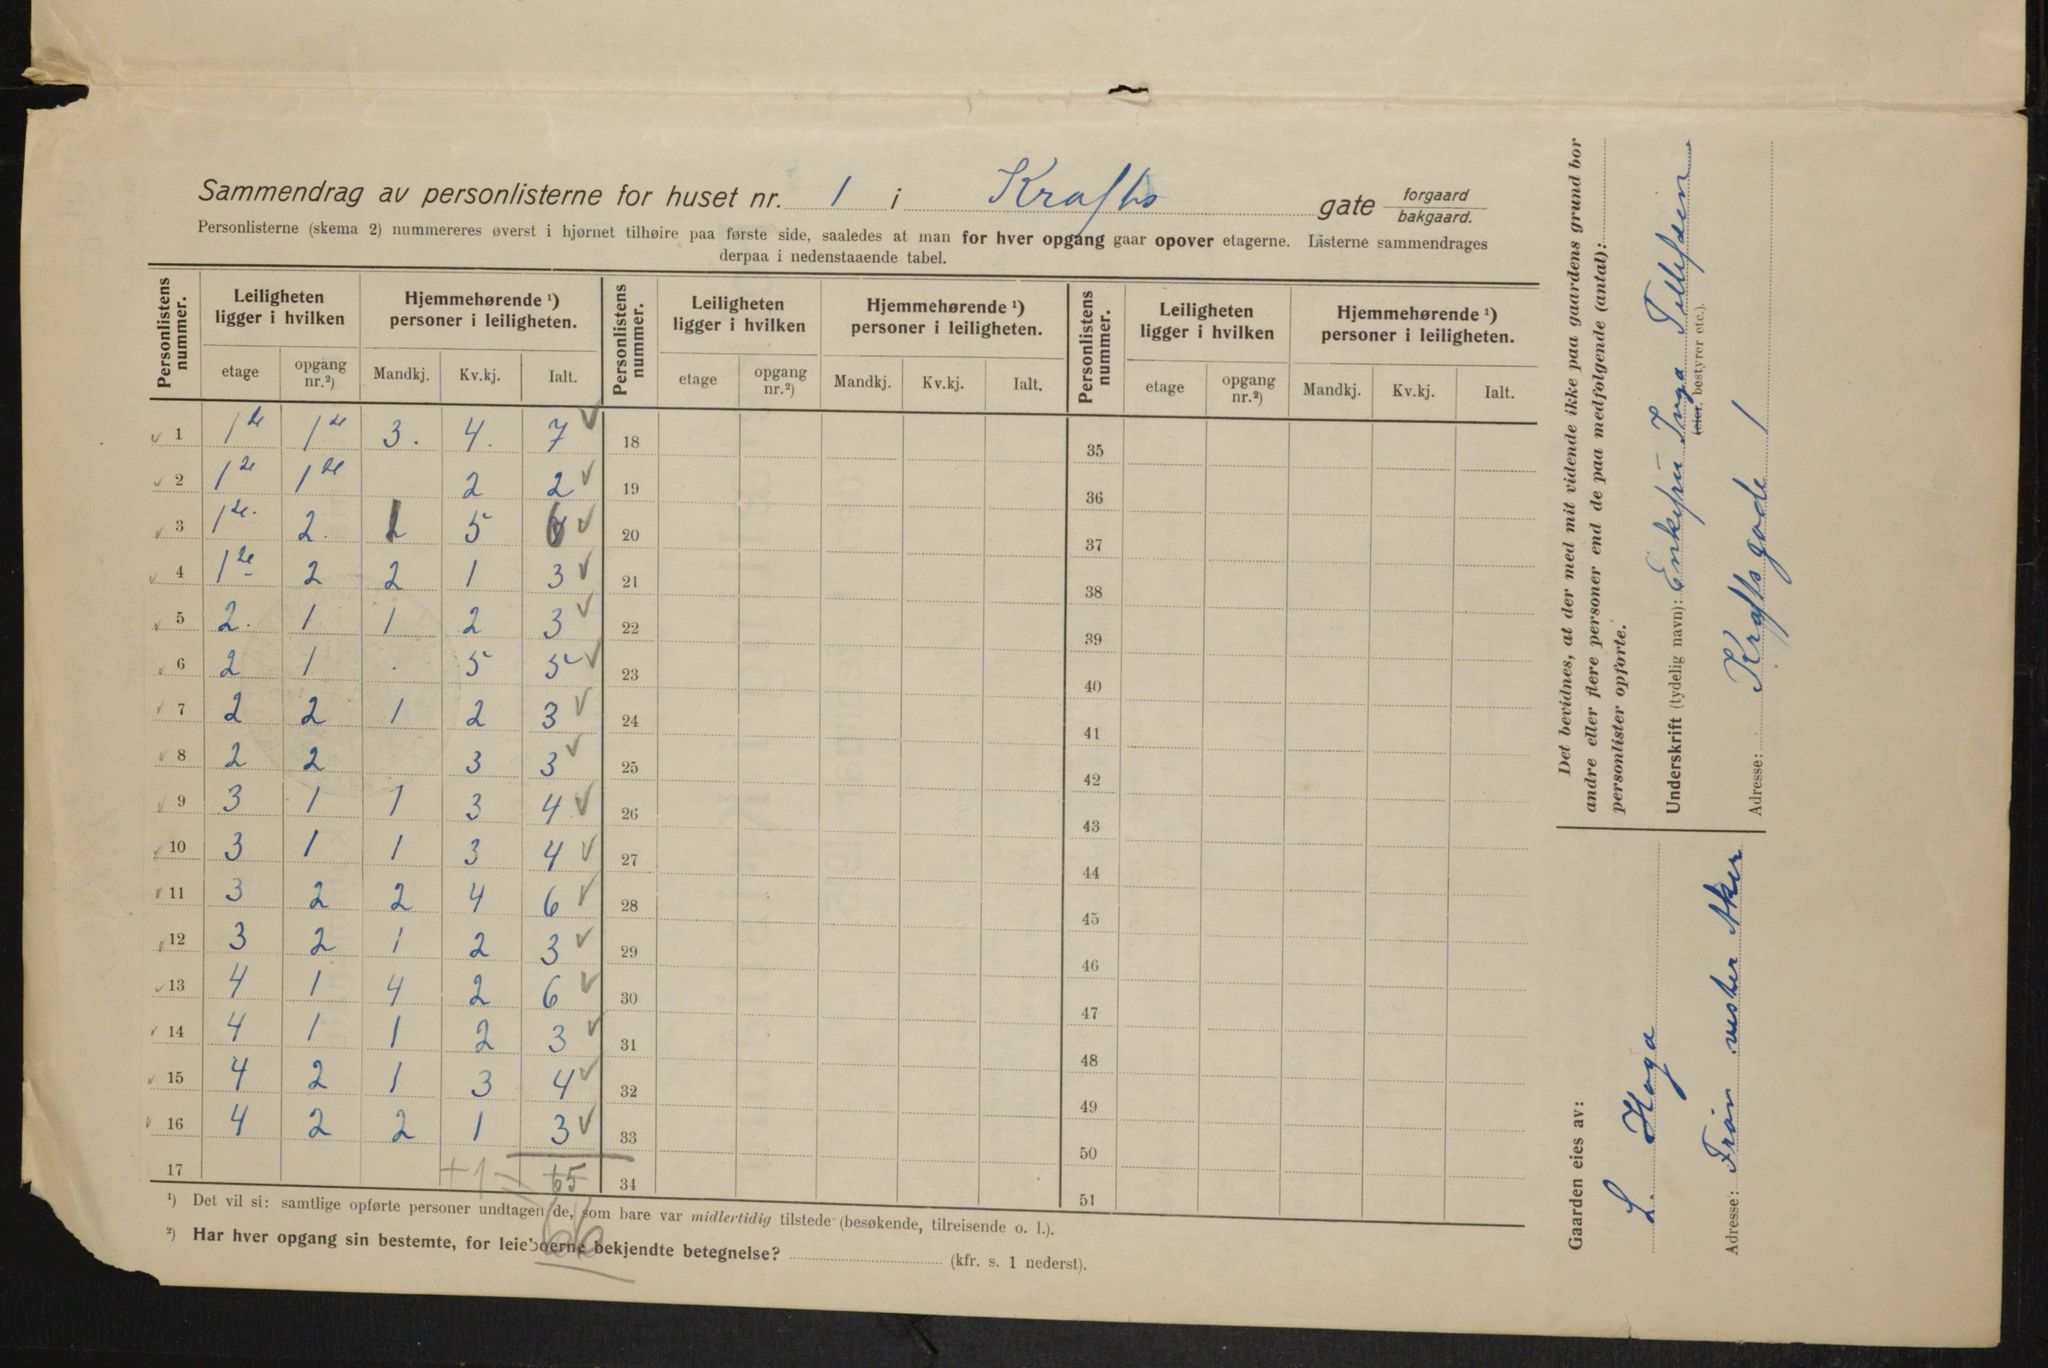 Sammendrag av personlisterne for huset nr. 1 i Krafts gate forgaard bakgaard.
Personlisterne (skema 2) nummereres øverst i hjørnet tilhøire paa første side, saaledes at man for hver opgang gaar opover etagerne. Listerne sammendrages
derpaa i nedenstaaende tabel.
Personlistens nummer. Leiligheten ligger i hvilken Hjemmehørende ¹) personer i leiligheten. Personlistens nummer. Leiligheten ligger i hvilken Hjemmehørende ¹) personer i leiligheten. Personlistens nummer. Leiligheten ligger i hvilken Hjemmehørende ¹) personer i leiligheten.
etage opgang nr.²) Mandkj. Kv.kj. Ialt. etage opgang nr.²) Mandkj. Kv.kj. Ialt. etage opgang nr.²) Mandkj. Kv.kj. Ialt.
1 1ste 1ste 3. 4. 7 18 35
2 1ste 1ste 2 2 19 36
3 1ste. 2. 1 5 6 20 37
4 1ste 2 2 1 3 21 38
5 2. 1 1 2 3 22 39
6 2 1 . 5 5 23 40
7 2 2 1 2 3 24 41
8 2 2 3 3 25 42
9 3 1 1 3 4 26 43
10 3 1 1 3 4 27 44
11 3 2 2 4 6 28 45
12 3 2 1 2 3 29 46
13 4 1 4 2 6 30 47
14 4 1 1 2 3 31 48
15 4 2 1 3 4 32 49
16 4 2 2 1 3 33 50
17 +1 65 34 51
66
¹) Det vil si: samtlige opførte personer undtagen de, som bare var midlertidig tilstede (besøkende, tilreisende o. l.).
²) Har hver opgang sin bestemte, for leieboerne bekjendte betegnelse? (kfr. s. 1 nederst).
Det bevidnes, at der med mit vidende ikke paa gaardens grund bor
andre eller flere personer end de paa medfolgende (antal):
personlister opforte.
Underskrift (tydelig navn): Enkefru Inga Tellefsen
(eier, bestyrer etc.).
Adresse: Krafts gade 1
Gaarden eies av:
L. Haga
Adresse: Frøen vester Aker